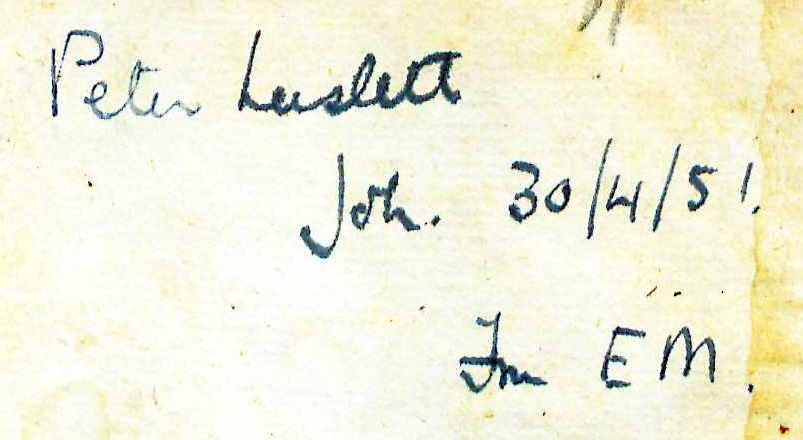 Peter Laslett
Joh. 30/4/51.
Fm EM.